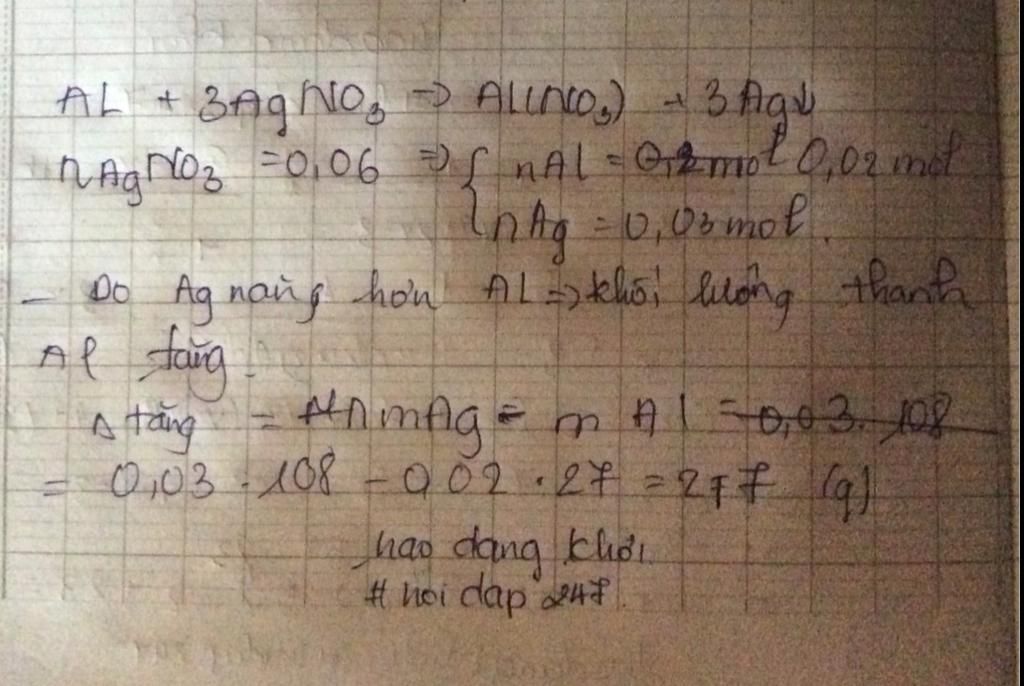 AL + 3AgNO3 => AL(NO3) + 3Ag↓
nAgNO3 = 0,06 => { nAl = 0,2 mol 0,02 mol
nAg = 0,03 mol.
- Do Ag nặng hơn AL => khối lượng thanh
Al tăng.
Δ tăng = mAg - m Al = 0,03. 108
= 0,03 . 108 - 0,02 . 27 = 2,7 (g)
hao dang khơi
# hoi dap 247.